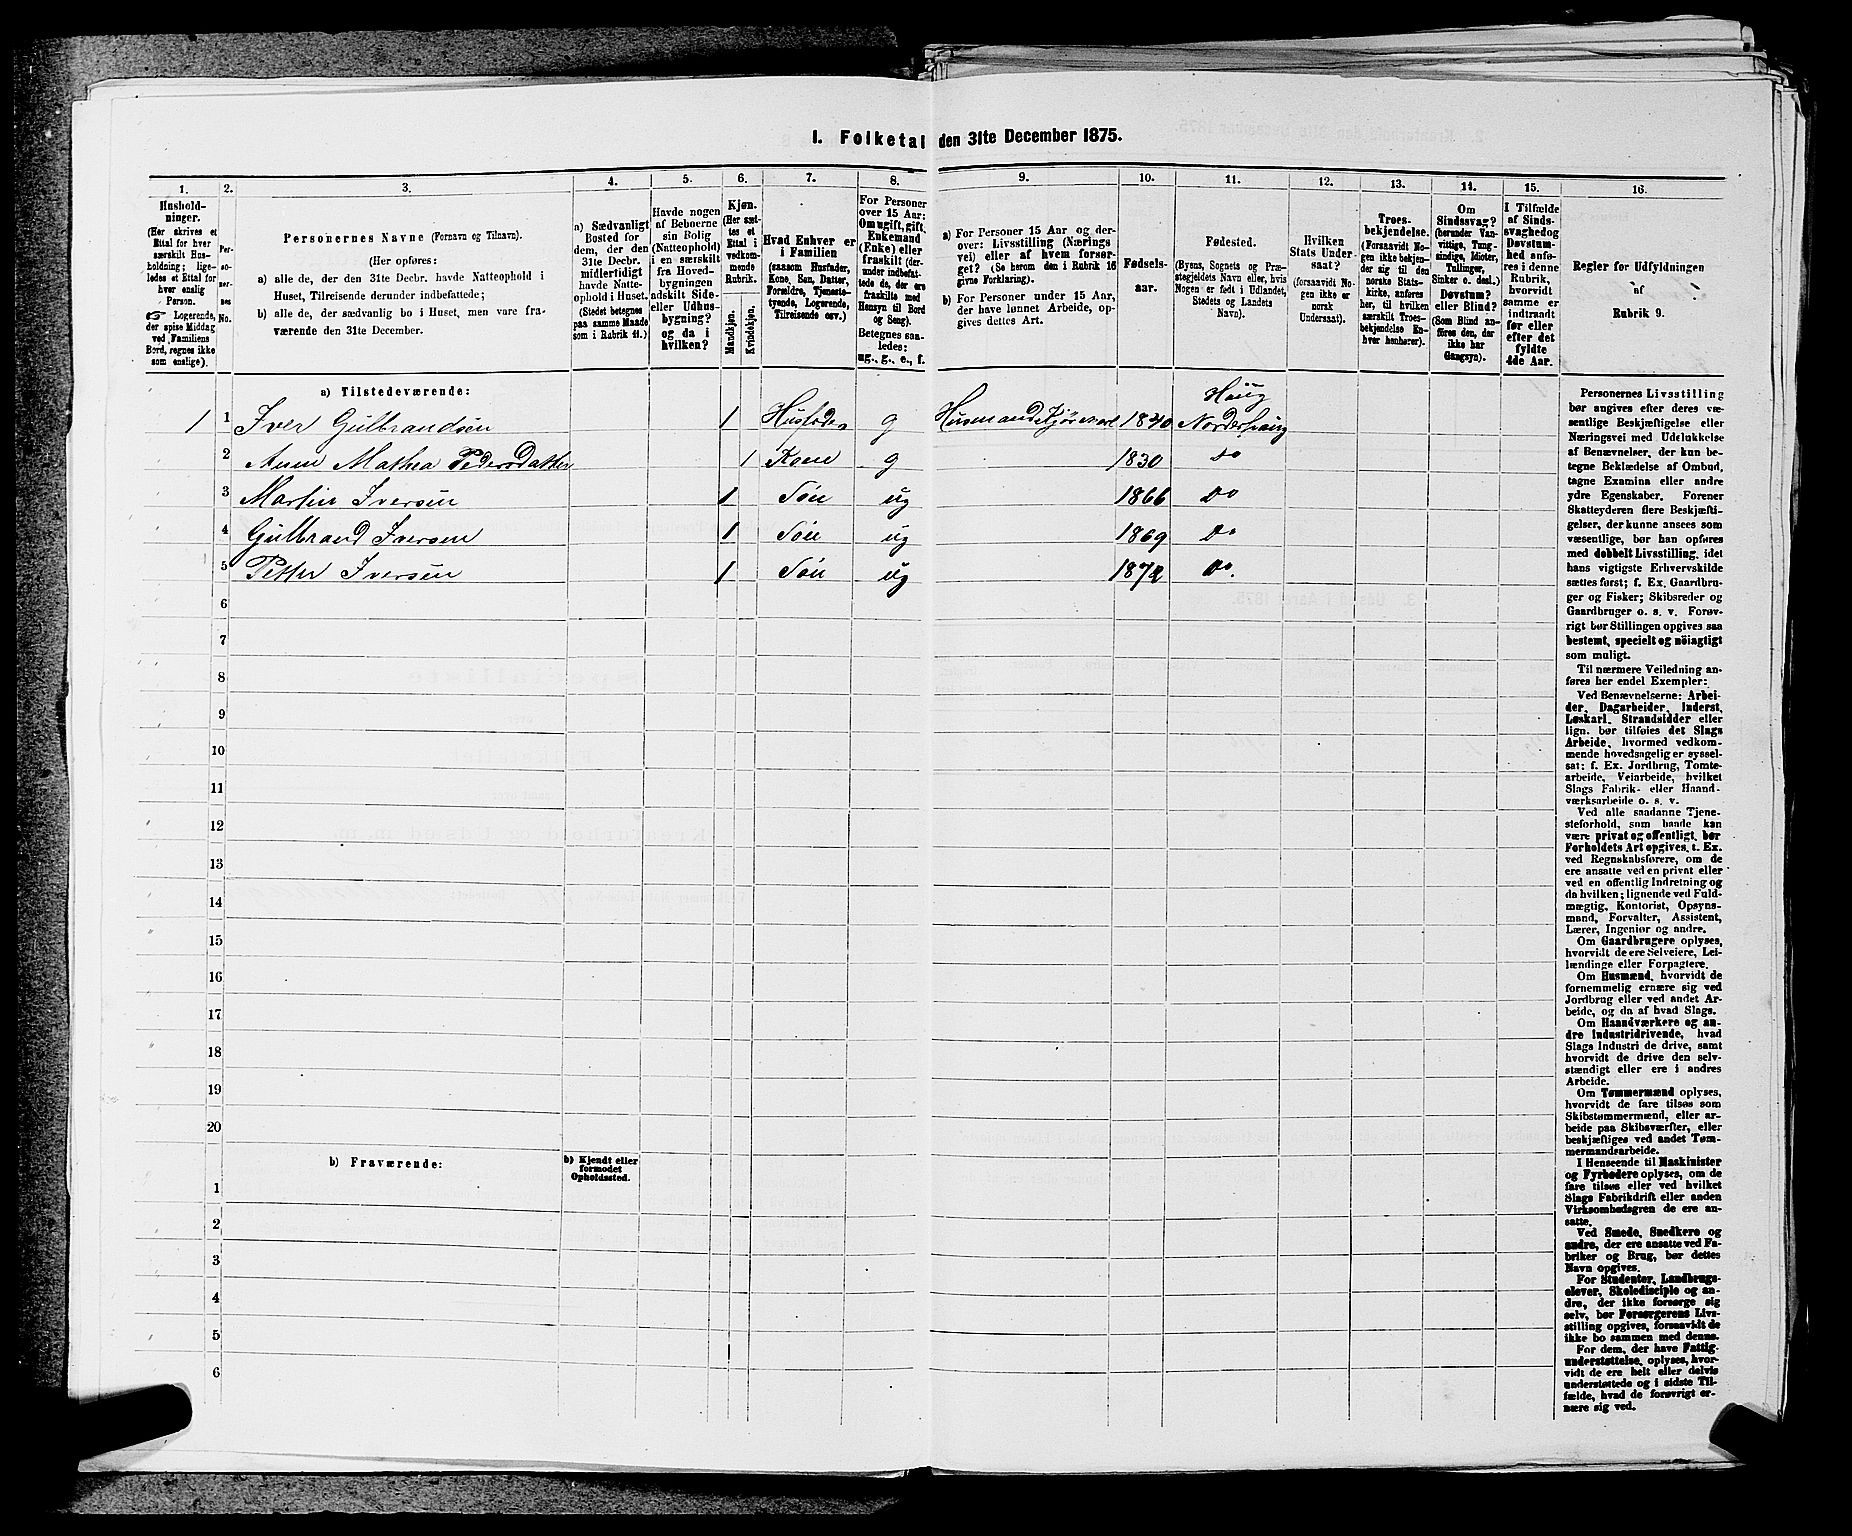 I. Folketal den 31te December 1875.
1. 2. 3. 4. 5. 6. 7. 8. 9. 10. 11. 12. 13. 14. 15. 16.
Hushold-
ninger.
(Her skrives et
Ettal for hver
særskilt Hus-
holdning; lige-
ledes et Ettal for
hver enslig
Person.
☞ Logerende,
der spise Middag
ved Familiens
Bord, regnes ikke
som enslige).
Per-
so-
ner-
nes
No.
Personernes Navne (Fornavn og Tilnavn).
(Her opføres:
a) alle de, der den 31te Decbr. havde Natteophold i
Huset, Tilreisende derunder indbefattede;
b) alle de, der sædvanlig bo i Huset, men vare fra-
værende den 31te December.
a) Sædvanligt
Bosted for
dem, der den
31te Decbr.
midlertidigt
havde Natte-
ophold i Huset.
(Stedet betegnes
paa samme Maade
som i Rubrik 11.)
Havde nogen
af Beboerne
sin Bolig
(Natteophold)
i en særskilt
fra Hoved-
bygningen
adskilt Side-
eller Udhus-
bygning?
og da i
hvilken?
Kjøn.
(Her sæt-
tes et
Ettal i
vedkom-
mende
Rubrik.
Mandkjøn.
Kvindekjøn.
Hvad Enhver er
i Familien
(saasom Husfader,
Kone, Søn, Datter,
Forældre, Tjeneste-
tyende, Logerende,
Tilreisende osv.)
For Personer
over 15 Aar:
Om ugift, gift,
Enkemand
(Enke) eller
fraskilt (der-
under indbefat-
tede de, der ere
fraskilte med
Hensyn til Bord
og Seng).
Betegnes saa-
ledes:
ug., g., e., f.
a) For Personer 15 Aar og der-
over: Livsstilling (Nærings
vei) eller af hvem forsør-
get? (Se herom den i Rubrik 16
givne Forklaring).
b) For Personer under 15 Aar,
der have lønnet Arbeide, op-
gives dettes Art.
Fødsels-
aar.
Fødested.
(Byens, Sognets og Præ-
stegjeldets Navn eller, hvis
Nogen er født i Udlandet,
Stedets og Landets
Navn).
Hvilken
Stats Under-
saat?
(forsaavidt No-
gen ikke er
norsk
Undersaat).
Troes-
bekjendelse.
(Forsaavidt No-
gen ikke bekjen-
der sig til den
norske Stats-
kirke, anføres
her, til hvilken
særskilt Troes-
bekjendelse En-
hver henhører).
Om
Sindssvag?
(herunder Van-
vittige, Tung-
sindige, Idioter,
Tullinger,
Sinker o. desl.)
Døvstum?
eller Blind?
(Som Blind an-
føres den, der
ikke har
Gangsyn).
I Tilfælde
af Sinds-
svaghed og
Døvstum-
hed anfø-
res i denne
Rubrik,
hvorvidt
samme er
indtraadt
før eller
efter det
fyldte
4de Aar.
Regler for Udfyldningen
af
Rubrik 9.
a) Tilstedeværende:
Haug
1 1 Iver Gulbrandsen 1 Husfader g 1840 Norderhaug
2 Anne Mathea Pedersdatter 1 Kone g 1830 do
3 Martin Iversen 1 Søn ug 1866 Do
4 Gulbrand Iversen 1 Søn ug 1869 Do
5 Petter Iversen 1 Søn ug 1872 Do.
6
7
8
9
10
11
12
13
14
15
16
17
18
19
20
b) Fraværende:
b) Kjendt eller
formodet
Opholdssted.
1
2
3
4
5
6
Personernes Livsstilling
bør angives efter deres væ-
sentlige Beskjæftigelse eller
Næringsvei med Udelukkelse
af Benævnelser, der kun be-
tegne Beklædelse af Ombud,
tagne Examina eller andre
ydre Egenskaber. Forener
Skatteyderen flere Beskjæfti-
gelser, der kunne ansees som
væsentlige, bør han opføres
med dobbelt Livsstilling, idet
hans vigtigste Erhvervskilde
sættes først; f. Ex. Gaardbru-
ger og Fisker; Skibsreder og
Gaardbruger o. s. v. Forøv-
rigt bør Stillingen opgives saa
bestemt, specielt og nöiagtigt
som muligt.
Til nærmere Veiledning an-
føres her endel Exempler:
Ved Benævnelserne: Arbei-
der, Dagarbeider, Inderst,
Løskarl, Strandsidder eller
lign. bør tilføies det Slags
Arbeide, hvormed vedkom-
mende hovedsagelig er syssel-
sat; f. Ex. Jordbrug, Tomte-
arbeide, Veiarbeide, hvilket
Slags Fabrik- eller Haand-
værksarbeide o. s. v.
Ved alle saadanne Tjene-
steforhold, som baade kan
være privat og offentligt, bør
Forholdets Art opgives, t. Ex.
ved Regnskabsførere, om de
ere ansatte ved en privat eller
ved en offentlig Indretning og
da hvilken; lignende ved Fuld-
mægtig, Kontorist, Opsyns-
mand, Forvalter, Assistent,
Lærer, Ingeniør og andre.
Om Gaardbrugere oplyses,
hvorvidt de ere Selveiere, Lei-
lændinge eller Forpagtere.
Om Husmænd, hvorvidt de
fornemmelig ernære sig ved
Jordbrug eller ved andet Ar-
beide, og da af hvad Slags.
Om Haandværkere og an-
dre industridrivende, hvad
Slags Industri de drive, samt
hvorvidt de drive den selv-
stændigt eller ere i andres
Arbeide.
Om Tømmermænd oplyses,
hvorvidt de fare tilsøs som
Skibstømmermænd, eller ar-
beide paa Skibsværfter, eller
beskjæftiges ved andet Tøm-
mermandsarbeide.
I Henseende til Maskinister
og Fyrbødere oplyses, om de
fare tilsøs eller ved hvilket
Slags Fabrikdrift eller anden
Virksomhedsgren de ere an-
satte.
Ved Smede, Snedkere og
andre, der ere ansatte ved Fa-
briker og Brug, bør dettes
Navn opgives.
For Studenter, Landbrugs-
elever, Skoledisciple og an-
dre, der ikke forsørge sig
selv, bør Forsørgerens Livs-
stilling opgives, forsaavidt de
ikke bo sammen med denne.
For dem, der have Fattig-
understøttelse, oplyses, hvor-
vidt de ere helt eller delvis
understøttede og i sidste Til-
fælde, hvad de forøvrigt er-
nære sig ved.